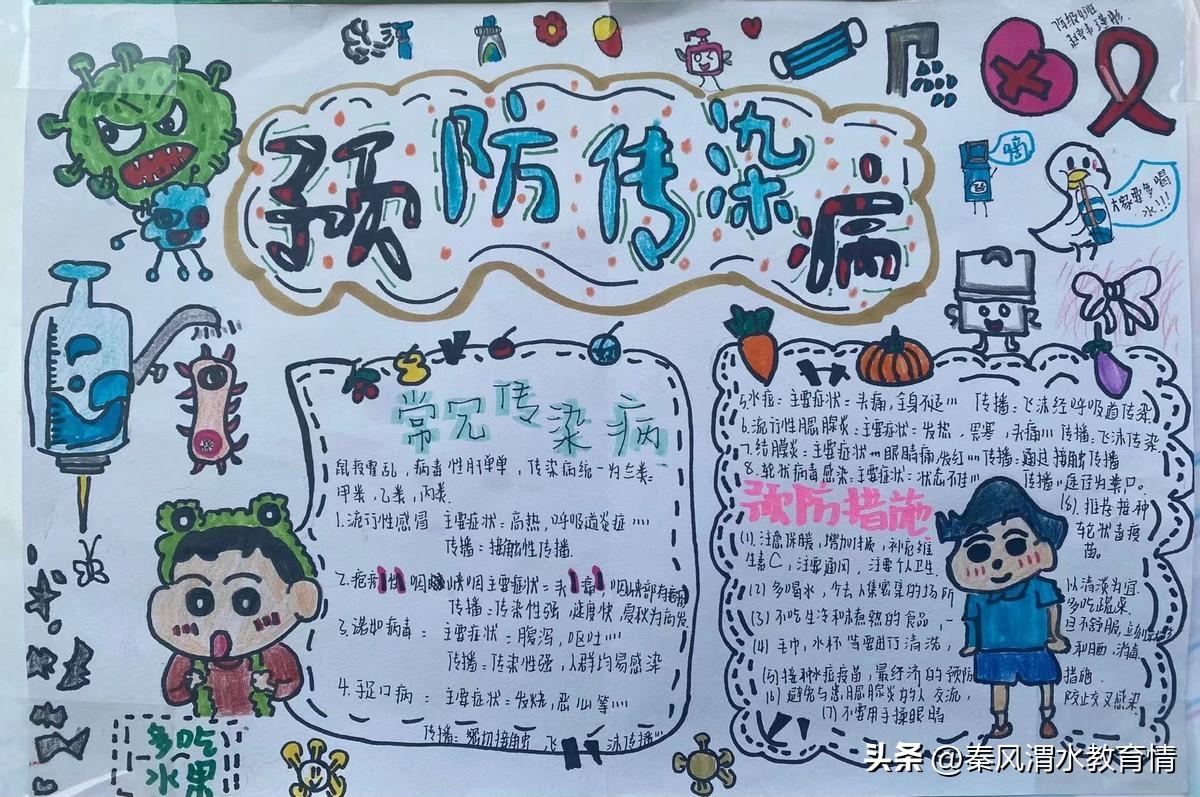 预防传染病
大家要多喝
水!!!
常见传染病
鼠疫霍乱,病毒性肝
传染病统一为三类:
甲类,乙类,丙类.
1.流行性感冒 主要症状:高热,呼吸道炎症
传播:接触性传播.
2.疱疹性咽峡 主要症状:
传播:传染性强,速度快,
3.诺如病毒: 主要症状:腹泻,呕吐
传播:传染性强,人群均易感染
4.手足口病: 主要症状:发烧,恶心等
传播:密切接触 飞沫传播
5.水痘:主要症状:头痛,全身不适 传播:飞沫经呼吸道传染
6.流行性腮腺炎:主要症状:发热,畏寒,头痛 传播:飞沫传染
7.结膜炎:主要症状 眼睛痛,发红 传播:通过接触传播
8.轮状病毒感染:主要症状:状态不佳 传播:途径为粪口。
预防措施
(1).注意保暖,增加体质,补充维
生素C,注意通风,注意个人卫生.
(2)多喝水,少去人集密集的场所
(3)不吃生冷和未煮熟的食品,
(4)毛巾,水杯等要进行清洗,
(5)接种水痘疫苗,最经济的预防措施.
(6)避免与患腮腺炎的人交流,防止交叉感染.
(7)不要用手揉眼睛
(8).推荐接种
轮状毒疫
苗。
以清淡为宜.
多吃蔬菜.
且不舒服,立刻
和晒,消毒
多吃
水果
头条 @秦风渭水教育情